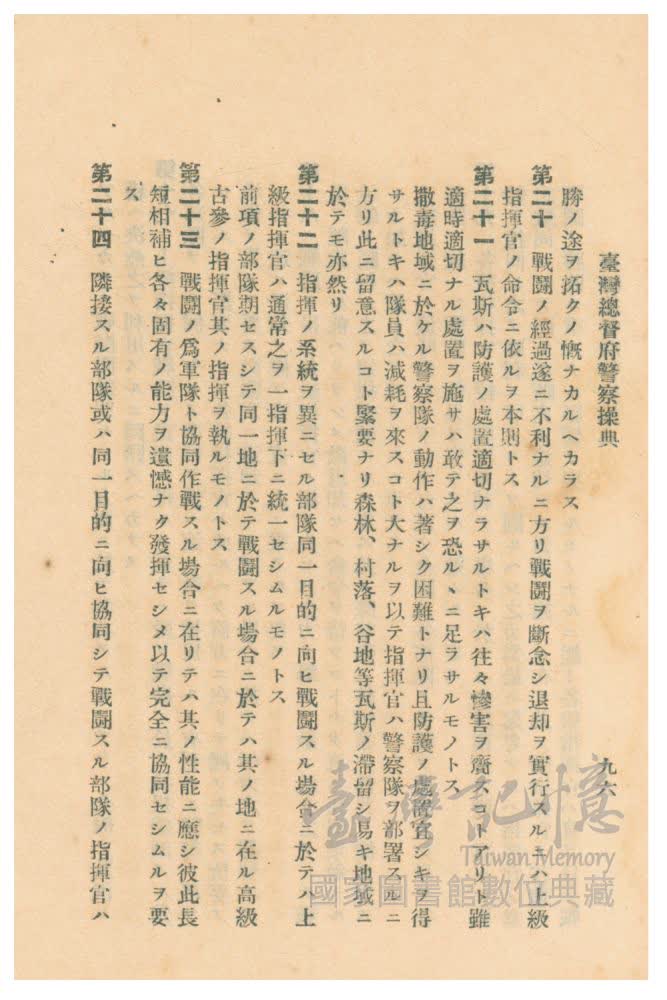 臺灣總督府警察操典
九六
勝ノ途ヲ拓クノ慨ナカルヘカラス
第二十　戰鬪ノ經過遂ニ不利ナルニ方リ戰鬪ヲ斷念シ退却ヲ實行スルニハ上級
指揮官ノ命令ニ依ルヲ本則トス
第二十一　瓦斯ハ防護ノ處置適切ナラサルトキハ往々慘害ヲ齎スコトアリト雖
適時適切ナル處置ヲ施サハ敢テ之ヲ恐ルヽニ足ラサルモノトス
撒毒地域ニ於ケル警察隊ノ動作ハ著シク困難トナリ且防護ノ處置宜シキヲ得
サルトキハ隊員ハ減耗ヲ來スコト大ナルヲ以テ指揮官ハ警察隊ヲ部署スルニ
方リ此ニ留意スルコト緊要ナリ森林、村落、谷地等瓦斯ノ滯留シ易キ地域ニ
於テモ亦然リ
第二十二　指揮ノ系統ヲ異ニセル部隊同一目的ニ向ヒ戰鬪スル場合ニ於テハ上
級指揮官ハ通常之ヲ一指揮下ニ統一セシムルモノトス
前項ノ部隊期セスシテ同一地ニ於テ戰鬪スル場合ニ於テハ其ノ地ニ在ル高級
古參ノ指揮官其ノ指揮ヲ執ルモノトス
第二十三　戰鬪ノ爲軍隊ト協同作戰スル場合ニ在リテハ其ノ性能ニ應シ彼此長
短相補ヒ各々固有ノ能力ヲ遺憾ナク發揮セシメ以テ完全ニ協同セシムルヲ要
ス
第二十四　隣接スル部隊或ハ同一目的ニ向ヒ協同シテ戰鬪スル部隊ノ指揮官ハ
臺灣記憶
Taiwan Memory
國家圖書館數位典藏